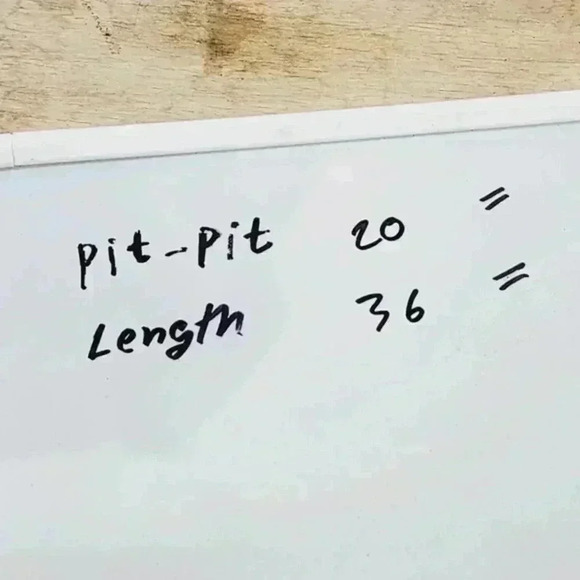 Pit-Pit 20 "
Length 36 "